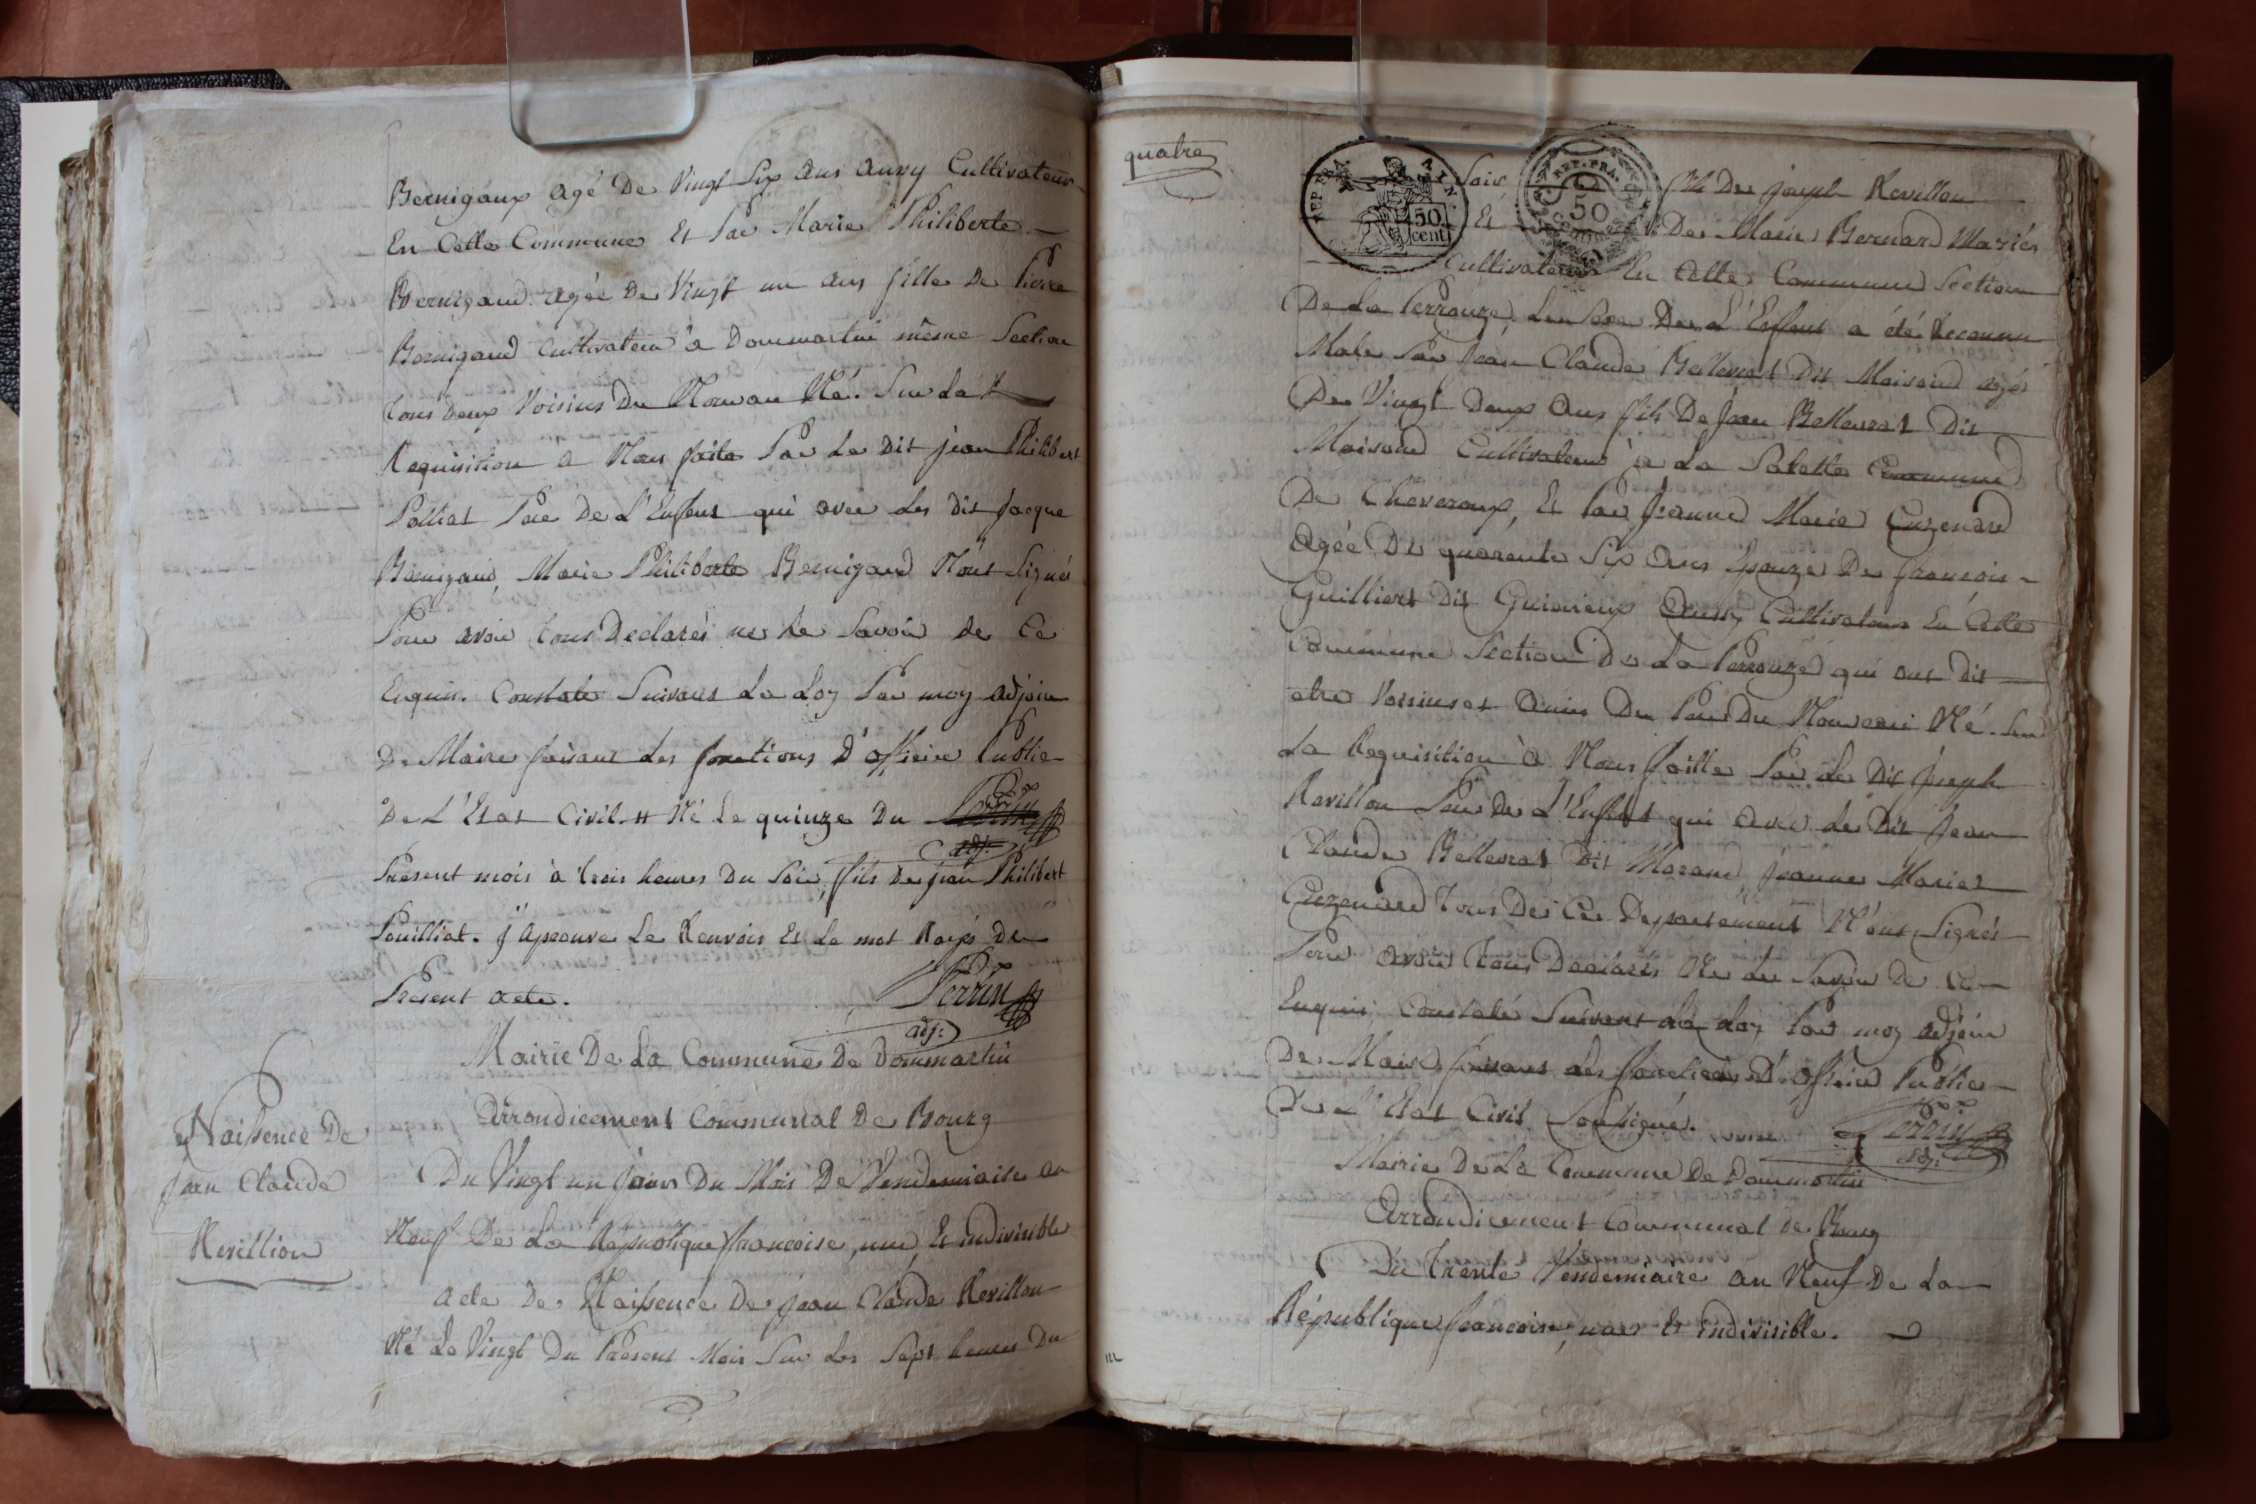 Bernigaux agé De Vingt Six ans Aussy Cultivateur
En Cette Commune Et Par Marie Philiberte
Bernigaud agée De Vingt un ans fille De Pierre
Bernigaud Cultivateur a Dommartin même Section
tous deux Voisins Du Nouveau Né. Sur La
Requisition a Nous faite Par Le Dit jean Philibert
Polliat Pere De L'Enfent qui avec Les Dit Jacque
Bernigaud, Marie Philiberte Bernigaud N'ont Signés
Pour avoir tous Declarés ne Le Savoir de Ce
Enquis. Constaté Suivant La Loy Par moy adjoin
De Maire faisant Les fonctions D'officier Public
De L'Etat Civil. # Né Le quinze Du Perrin
adj.
Présent mois à trois heures Du Soir, fils De jean Philibert
Pouilliat. J'Aprouve Le Renvois Et Le mot Rayé du
Présent acte. Perrin
adj:
Mairie De La Commune De Dommartin
Arrondicement Communal De Bourg
Naissence De
Jean Claude
Revillion
Du Vingt un jour Du Mois De Vendemiaire an
Neuf De La Republique francoise, une, Et indivisible
Acte De Naissence De jean Claude Revillon
Né Le Vingt Du Present Mois Sur Les Sept heures Du
quatre
REP. FRA. AIN.
50 cent
REP. FRA.
50
Soir fils De joseph Revillon
Et De Marie Bernard Mariés
Cultivateurs En Cette Commune Section
De La Perrouze, Le Sexe De L'Enfent a été Reconnu
Male Par Jean Claude Bellevrat Dit Maisaud agé
De Vingt Deux Ans fils De Jean Bellevrat Dit
Maisaud Cultivateur à La Commune
De Chevroux, Et Par Jeanne Marie Cuzenard
Agée De quarente Six Ans Epouze De francois
Guilliert Dit Aussy Cultivateur En Cette
Commune Section De La Perrouze qui ont Dit
etre Voisins et Amis Du Pere Du Nouveau Né. Sur
La Requisition à Nous faitte Par Le Dit Joseph
Revillon Pere De L'Enfent qui avec Le Dit Jean
Claude Bellevrat Dit Jeanne Marie
Cuzenard Tous De Ce Departement N'ont Signés
Pour avoir tous Declarés Ne Le Savoir De Ce
Enquis; Constaté Suivant La Loy Par moy adjoin
De Maire faisant Les fonctions D'officier Public
De L'Etat Civil Soussigné. Perrin
adj:
Mairie De La Commune De Dommartin
Arrondicement Communal de Bourg
Du Trente Vendemiaire an Neuf De La
République francoise, une Et indivisible.